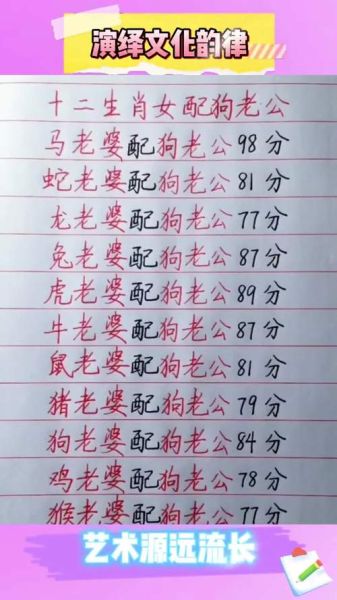 演绎文化韵律
十二生肖女配狗老公
马老婆配狗老公98分
蛇老婆配狗老公81分
龙老婆配狗老公77分
兔老婆配狗老公87分
虎老婆配狗老公89分
牛老婆配狗老公87分
鼠老婆配狗老公81分
猪老婆配狗老公79分
狗老婆配狗老公84分
鸡老婆配狗老公78分
猴老婆配狗老公77分
艺术源远流长